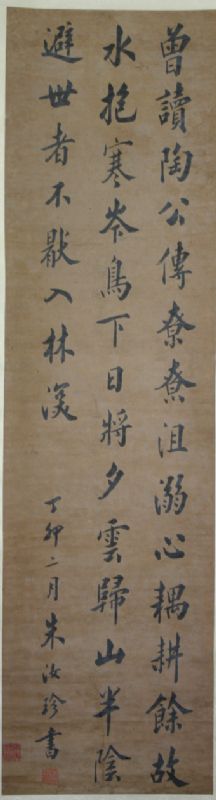 曾讀陶公傳尞尞沮溺心耦耕餘故
水抱寒岑鳥下日將夕雲歸山半陰
避世者不厭入林深
丁卯二月朱汝珍書